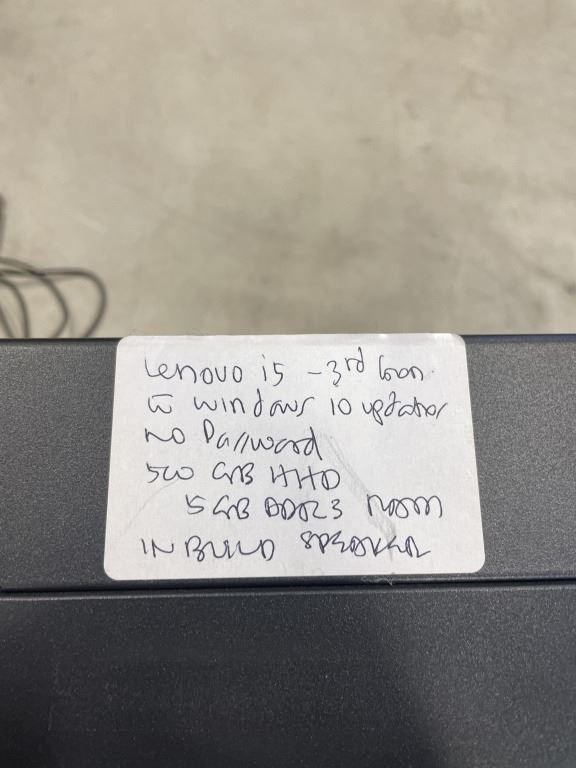 Lenovo i5 - 3rd Gen
windows 10 updates
NO Password
500 GB HHD
5 GB DDR3 RAM
IN BUILD SPEAKER